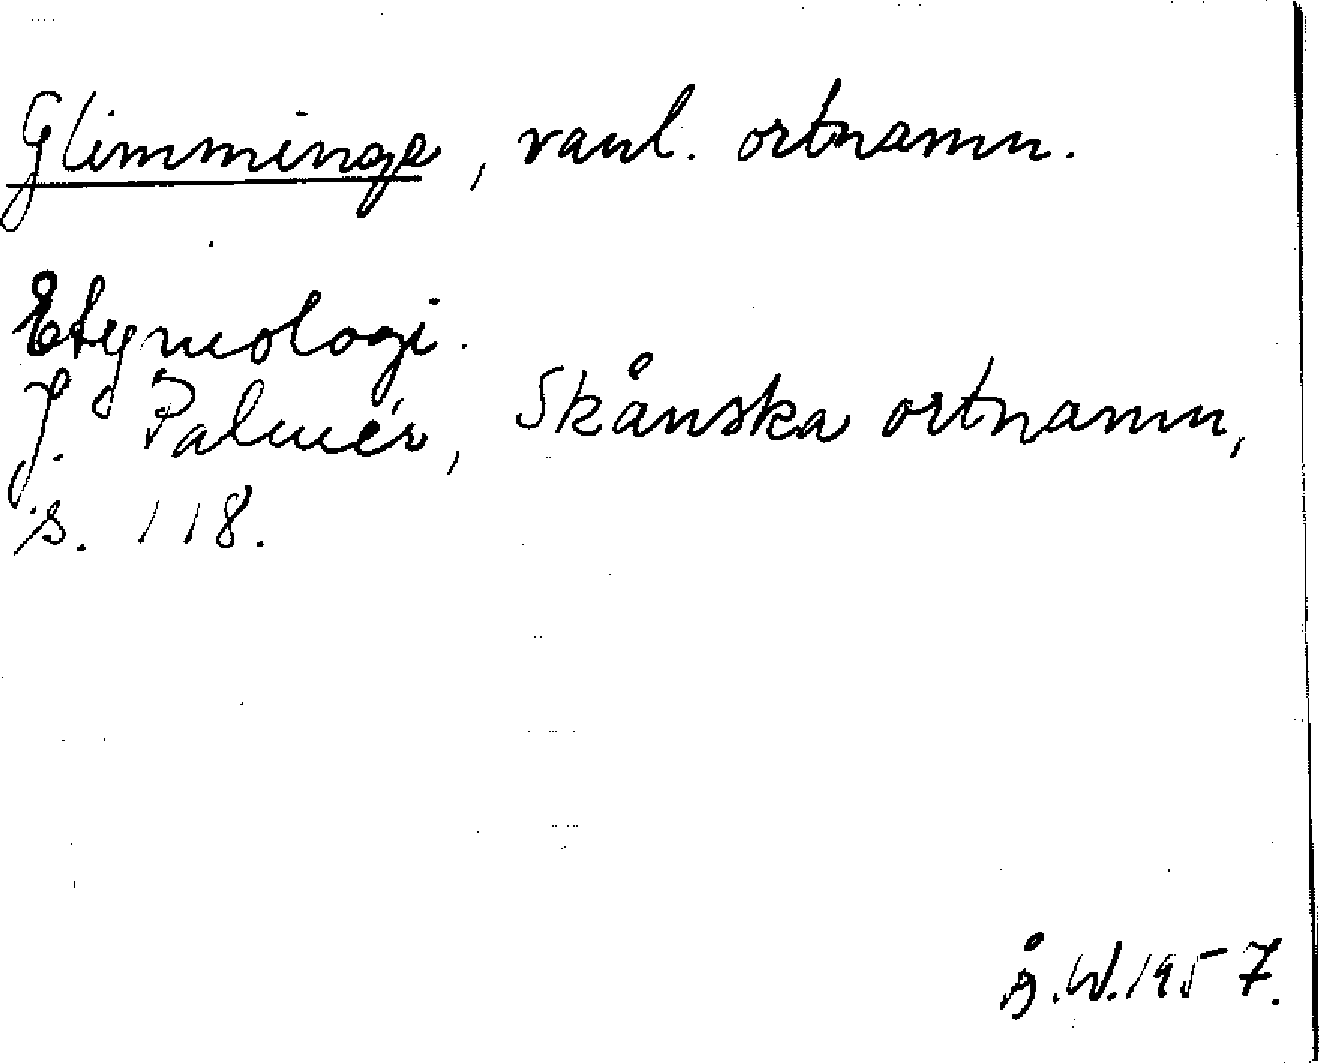 Glimminge, vanl. ortnamn.
Etymologi.
J. Palmér, Skånska ortnamn,
s. 118.
Å.W.1957.